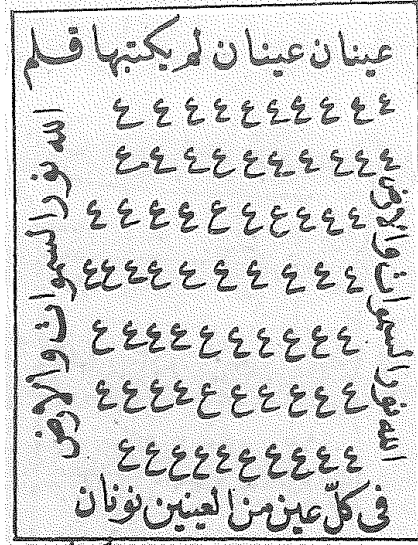 عينان عينان لم يكتبها قلم
ع ع ع ع ع ع ع ع ع ع
ع ع ع ع ع ع ع ع ع ع
ع ع ع ع ع ع ع ع ع ع
ع ع ع ع ع ع ع ع ع ع
ع ع ع ع ع ع ع ع ع ع
ع ع ع ع ع ع ع ع ع ع
ع ع ع ع ع ع ع ع ع ع
الله نور السموات والارض
الله نور السموات والارض
فى كلّ عين من العينين نونان